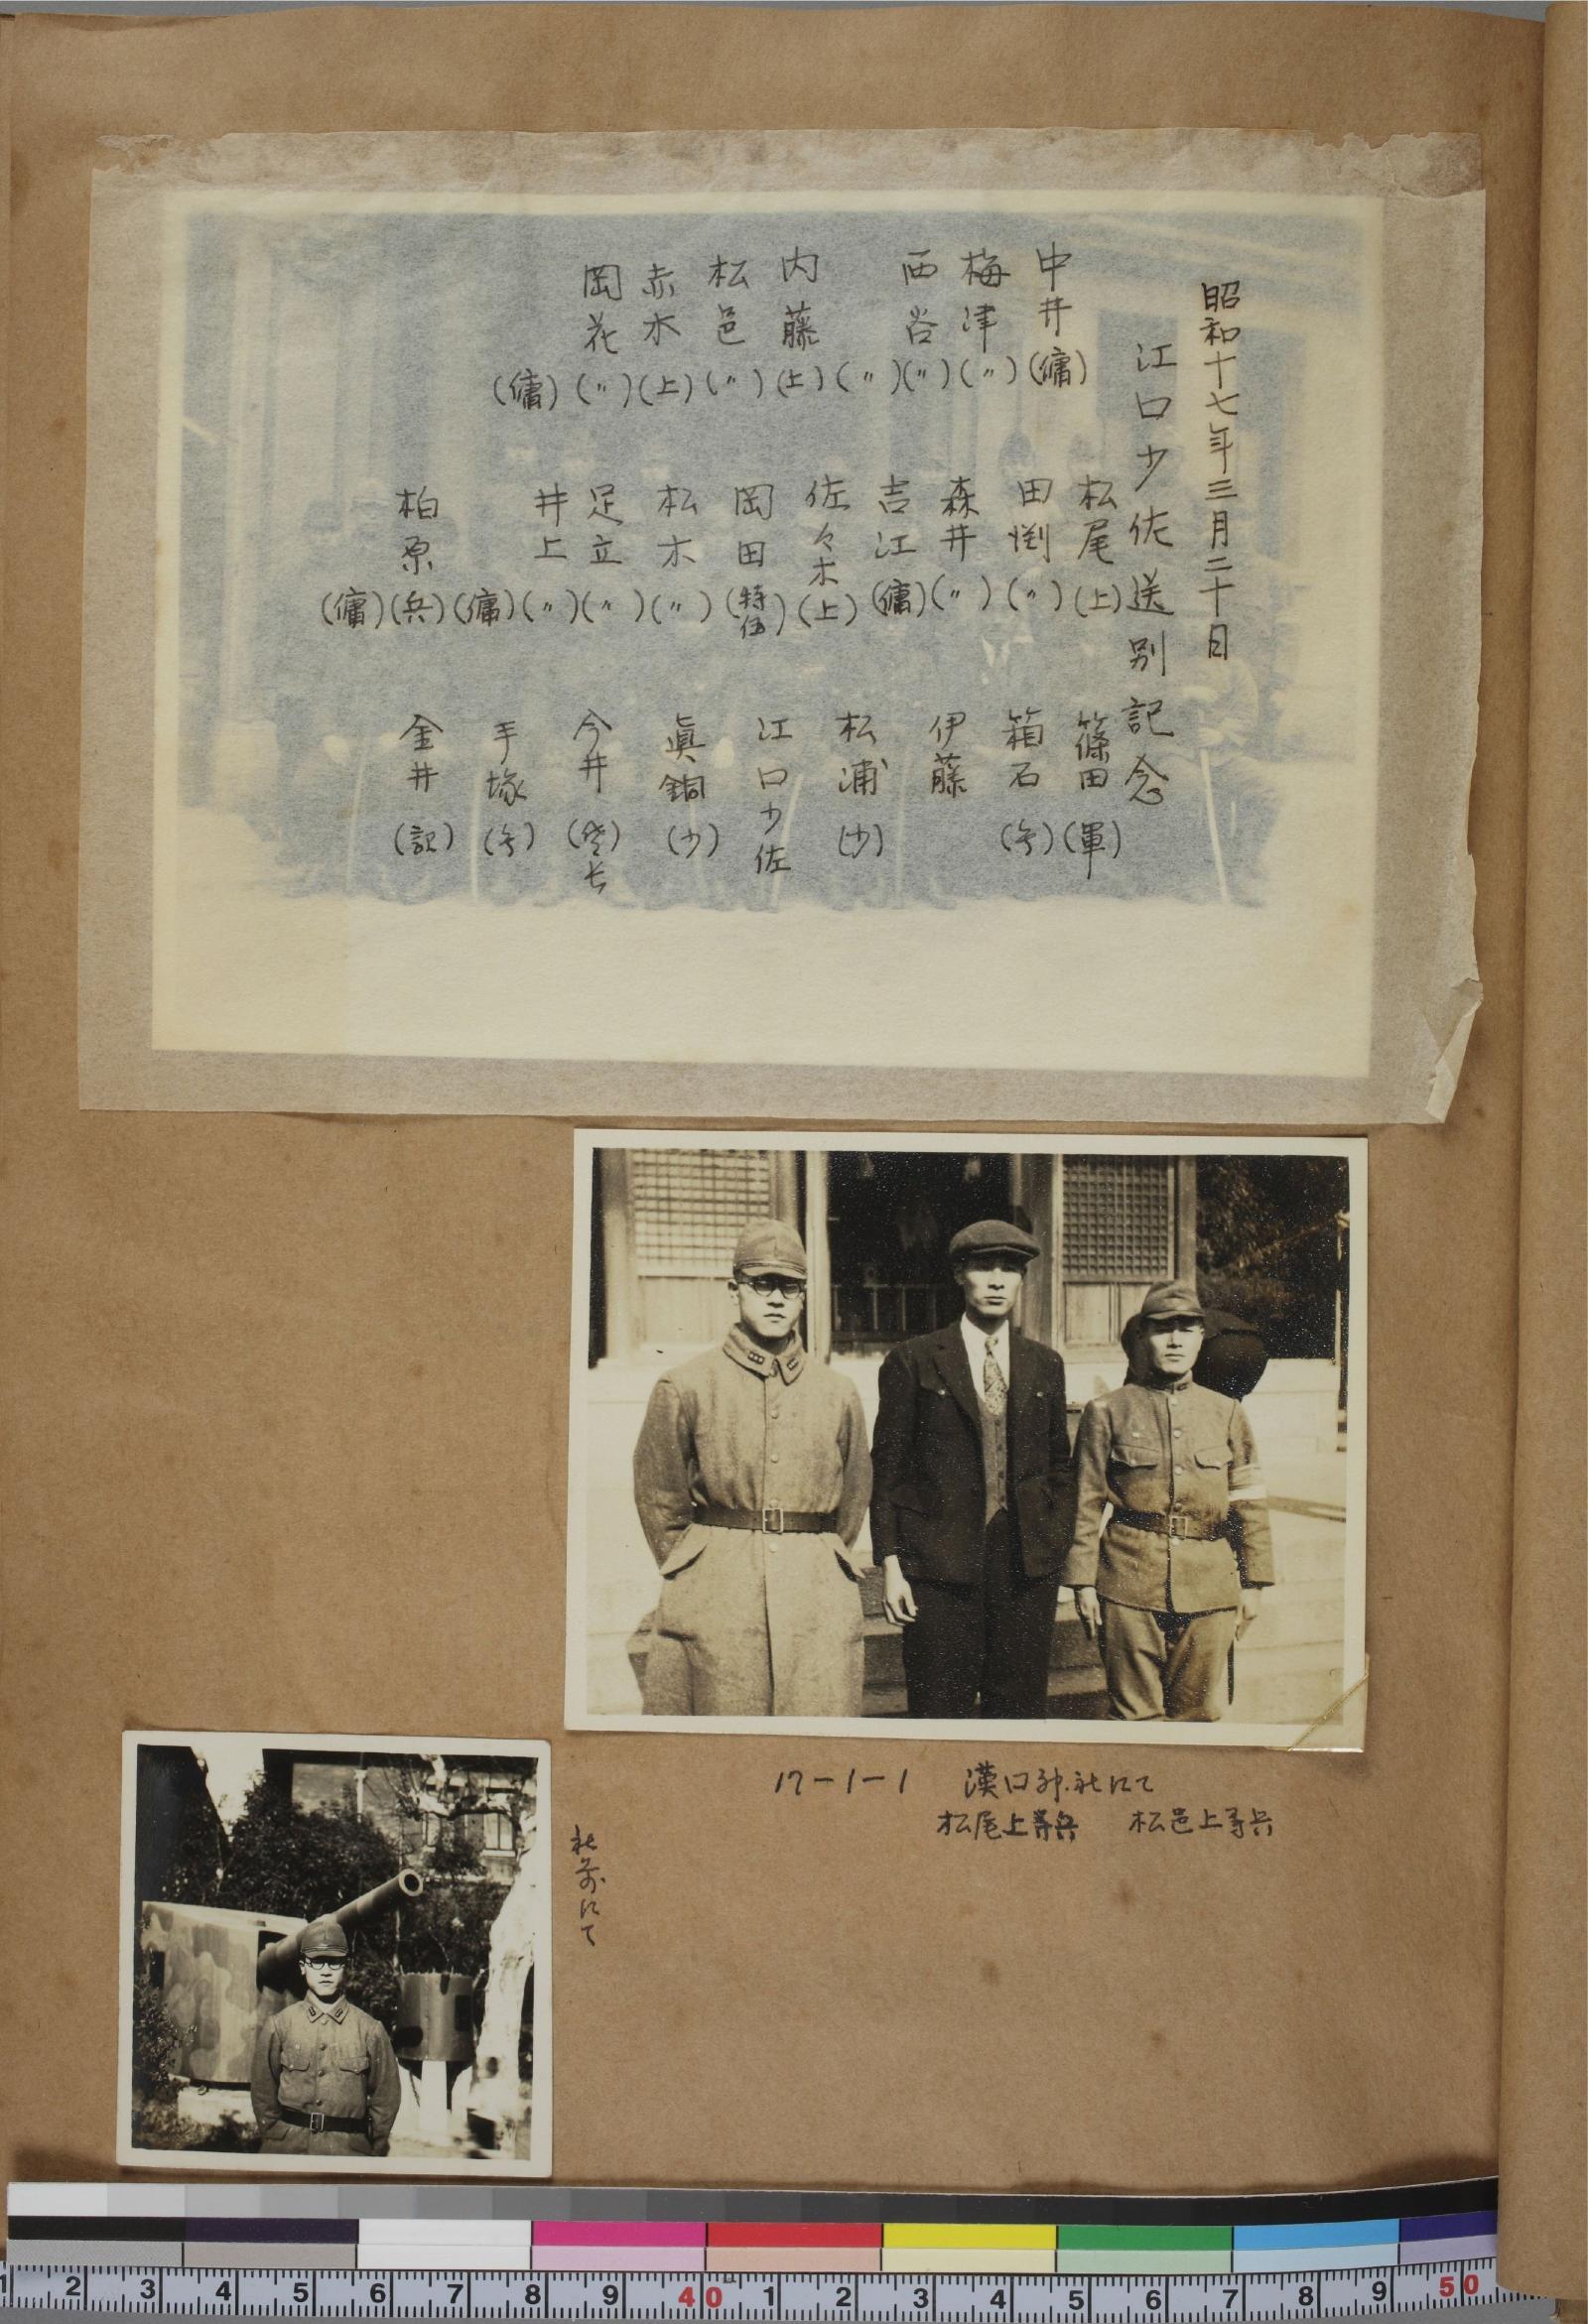 昭和十七年三月二十日
江口少佐送別記念
中井(傭)
梅津(〃)
西谷(〃)
(〃)
内藤(上)
松邑(〃)
赤木(上)
岡花(〃)
(傭)
松尾(上)
田渕(〃)
森井(〃)
吉江(傭)
佐々木(上)
岡田(特伍)
松木(〃)
足立(〃)
井上(〃)
(傭)
柏原(兵)
(傭)
篠田(軍)
箱石
伊藤
松浦(少)
江口少佐
眞鍋(少)
今井
手塚
金井(記)
17-1-1 漢口神社にて
松尾上等兵 松邑上等兵
社前にて
1 2 3 4 5 6 7 8 9 40 1 2 3 4 5 6 7 8 9 50